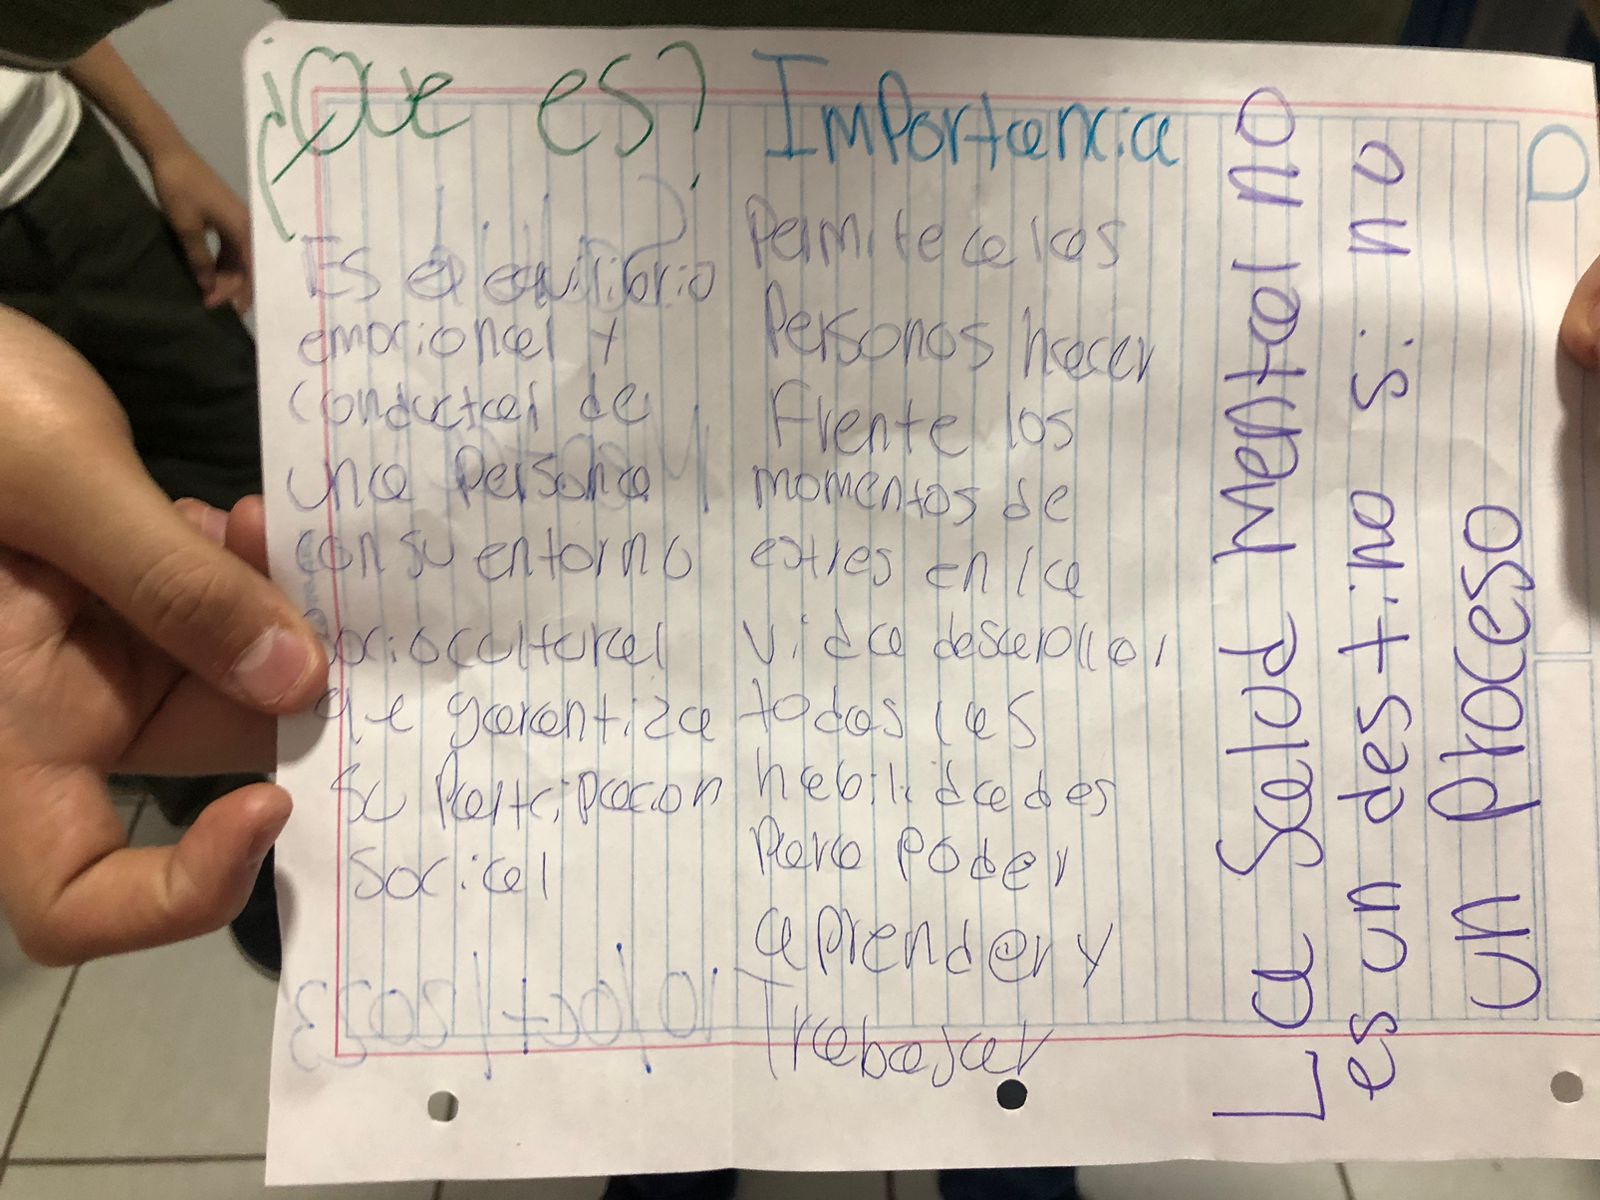 ¿Que es?
Es el equilibrio
emocional y
conductal de
una Persona
con su entorno
sociocultural
que garantiza
su Participacion
social
Importancia
Permite a las
Personas hacer
Frente los
momentos de
estres en la
vida desarollar
todas las
habilidades
Para Poder
aprender y
Trabajar
La Salud Mental no
es un destino si no
un Proceso
10/oct/2023